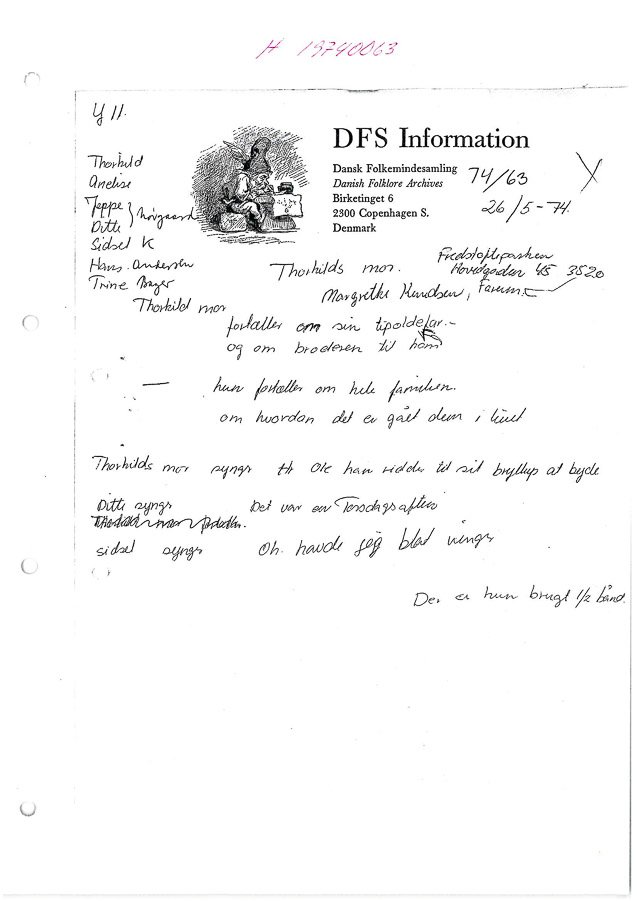 H 19740063
Y 11.
DFS Information
Dansk Folkemindesamling
Danish Folklore Archives
Birketinget 6
2300 Copenhagen S.
Denmark
74/63
26/5-74.
Thorkild
Anelise
Jeppe
Ditte } Nörgaard
Sidsel K
Hans. Andersen
Trine
Thorkilds mor.
Margrethe Knudsen, Farum
Hovedgaden 45 3520
Thorkild mor
fortæller om sin tipoldefar.-
og om broderen til ham
— hun fortæller om hele familien.
om hvordan det er gået dem i livet
Thorkilds mor syngr Hr Ole han ridder til sit bryllup at byde
Ditte syngr Det var en Torsdags aften
sidsel syngr Oh. havde jeg blot vinger
Der er kun brugt 1/2 bånd.